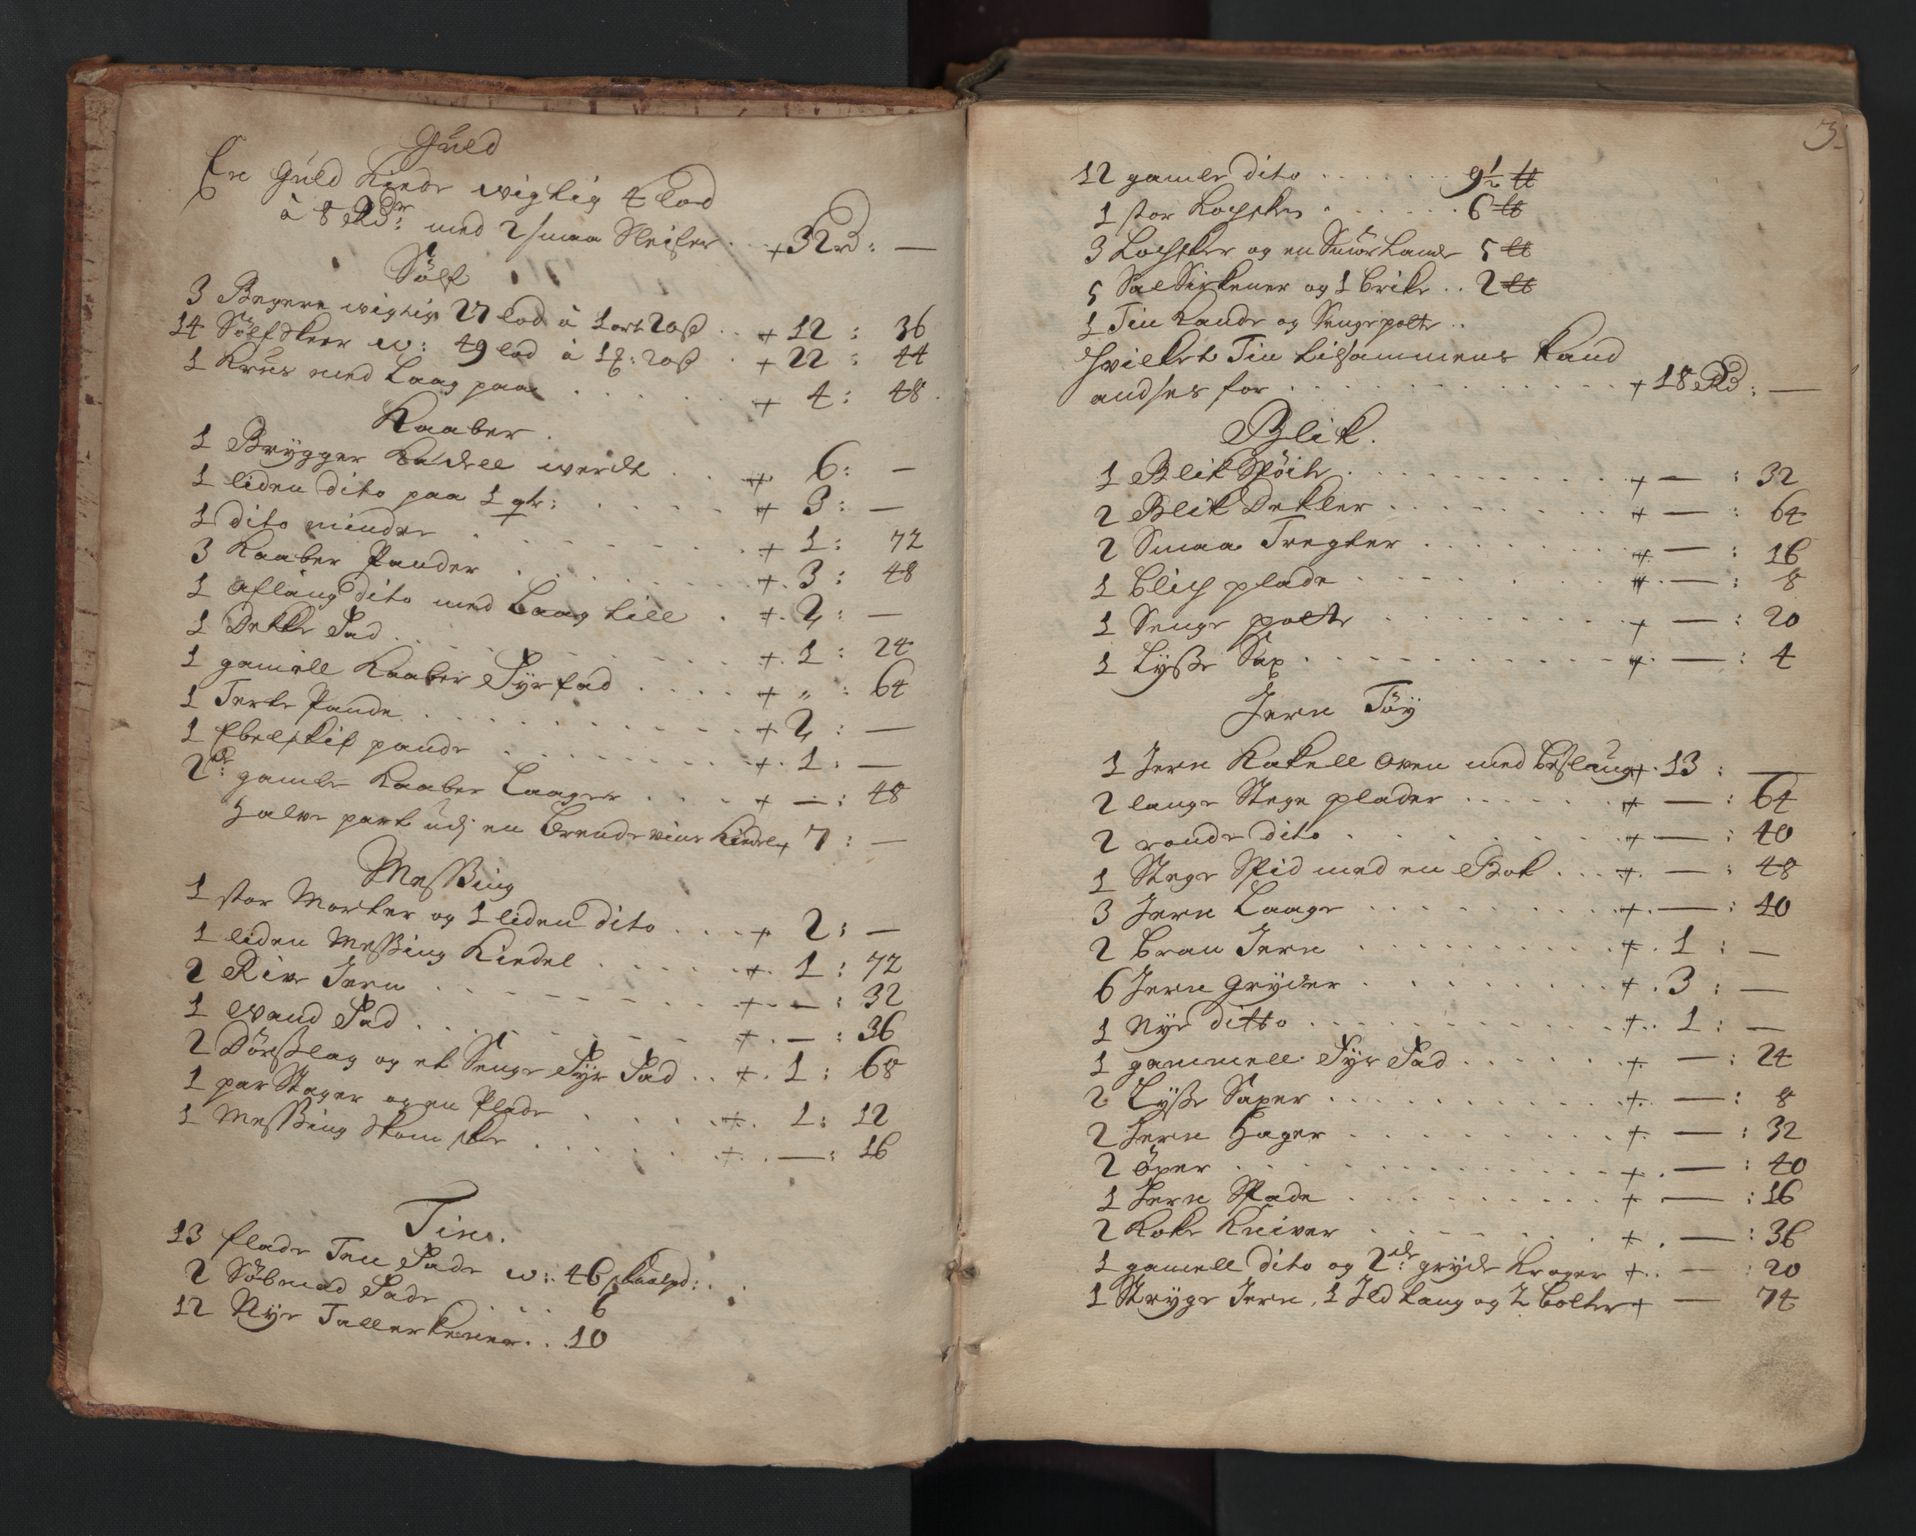 Guld
En Guld Kiede wigtig 4 lod
à 8 Rdr: med 2 smaa Sleifer . + 32 rd : —
Sölf
3 Begere wigtig 27 lod à 1 ort 20 ß . . + 12 : 36
14 Sölf Skeer w: 49 lod à 1 : 20 ß . + 22 : 44
1 Kruus med Laag paa . . . . . + 4 : 48 .
Kaaber .
1 Brygger Kiedell werdt . . + 6 : —
1 liden dito paa 1 qtr: . . . . . + 3 : —
1 dito mindre . . . . . . + 1 : 72
3 Kaaber Pander . . . . . . +. 3 : 48
1 aflang dito med Laag till . +. 2 : —
1 Dekke Fad . . . . . . . +. 1 : 24
1 gamell Kaaber Fyrfad . . . . + „ : 64
1 Terte Pande . . . . . . . + 2 : —
1 Ebelskif pande . . . . . . +. 1 : —
2de: gamle Kaaber Laager . . . + — : 48
Halve part udj en Brendevins Kiedel + 7 : —
Messing
1 stor Morter og 1 liden dito . . . + 2 : —
1 liden Messing Kiedel . . . . . +. 1 : 72
2 Rive Jern . . . . . . . +. — : 32
1 Wand Fad . . . . . . . +. — : 36
2 Dörslag og et Senge Fyr Fad . . +. 1 : 68
1 par Stager og en Plade . . . . +. 1 : 12
1 Messing Skom skee . . . . . +. . — : 16
Tin.
13 flade Tin Fade w: 46 skaalpd: . .
2 Söbmad Fade . . . . 6
12 Nye Tallerkener . . . 10
3
12 gamle dito . . . . . . . 9½ ℔
1 stor . . . . . 6 ℔
3 og en Smör Kande 5 ℔
5 Sal Sirkener og 1 Brike . . 2 ℔
1 Tin Kande og Senge potte . .
Hvilket Tin tilsammens kand
andses for . . . . . . . . . + 18 Rd : —
Blik .
1 Blik Spöite . . . . . . . . + — : 32
2 Blik Dekler . . . . . . . + — : 64
2 Smaa Tregter . . . . . . . + — : 16
1 blich plade . . . . . . . . +. — : 8
1 Senge potte . . . . . . . + — : 20
1 Lysse Sax . . . . . . . . +. — : 4
Jern Töy
1 Jern Kakell Oven med Beslaug +. 13 : —
2 lange Stege plader . . . . . . + — : 64
2 runde dito . . . . . . . . + — : 40
1 Stege Spid med en Bok . . . +. — : 48
3 Jern Laage . . . . . . . . +. — : 40
2 Bran Jern . . . . . . . . +. 1 : —
6 Jern Gryder . . . . . . . + . 3 : —
1 Nye ditto . . . . . . . . . +. . 1 : —
1 gammell Fyr Fad . . . . . . + — : 24
2 Lysse Saxer . . . . . . . . +. — : 8
2 Jern Hager . . . . . . . +. — : 32
2 Öxer . . . . . . . . . . + . — : 40
1 Jern Spade . . . . . . . + — : 16
2 Koke Kniver . . . . . . + . — : 36
1 gamell dito og 2de: gryde Kroger +. . — : 20
1 Stryge Jern, 1 Ild tang og 2 bolter + — 74